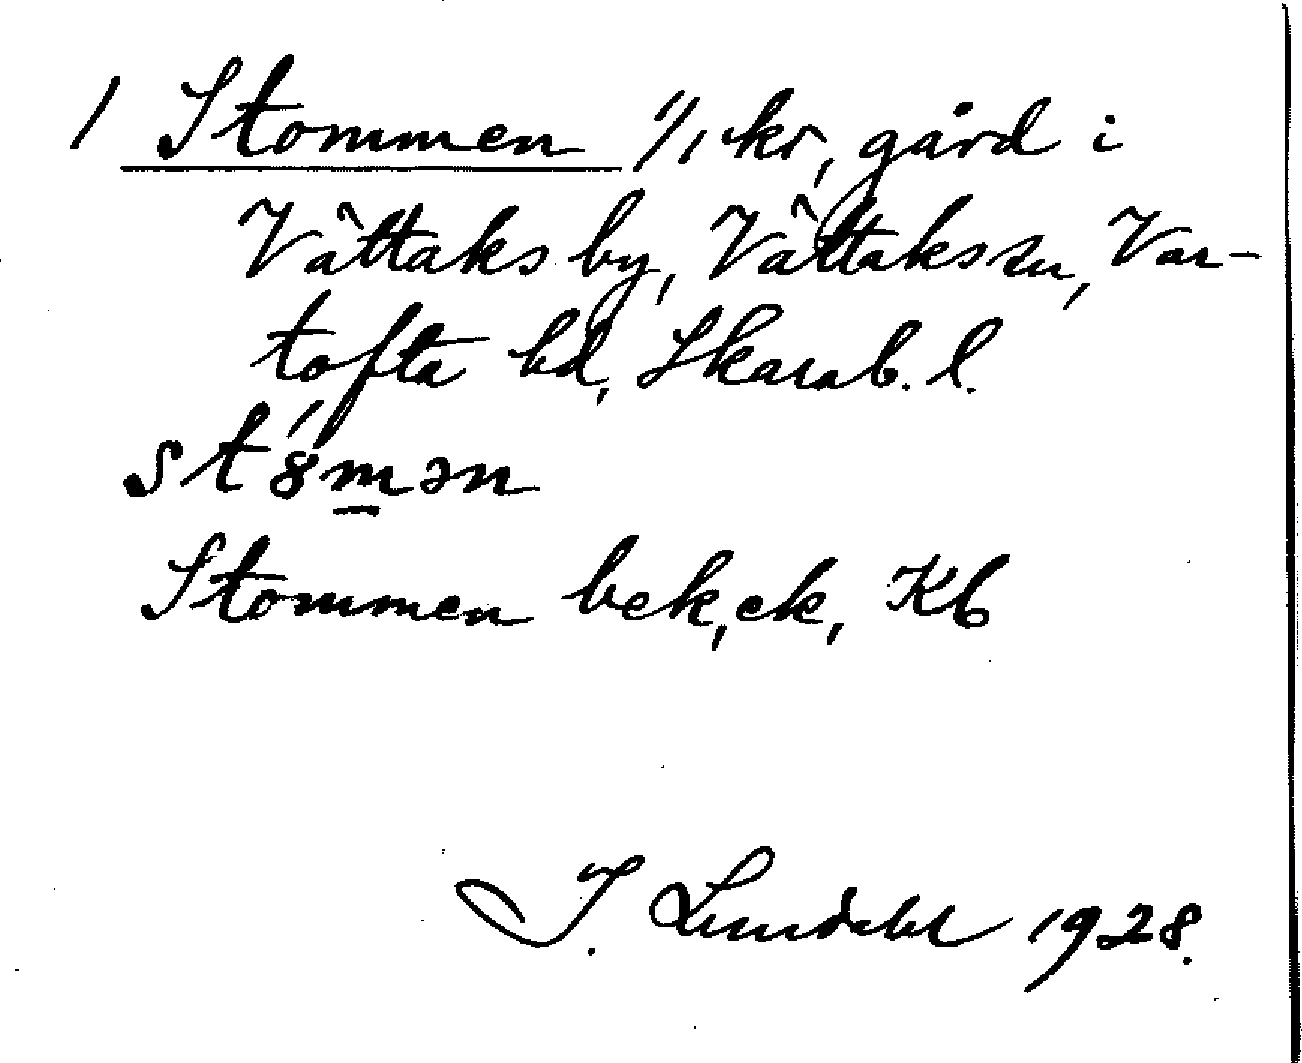 1 Stommen 1/1 kr, gård i
Vättaks by, Vättaks sn, Var-
tofta hd, Skarab. l.
st8́mən
Stommen bek, ek, Kb
I. Lundahl 1928.